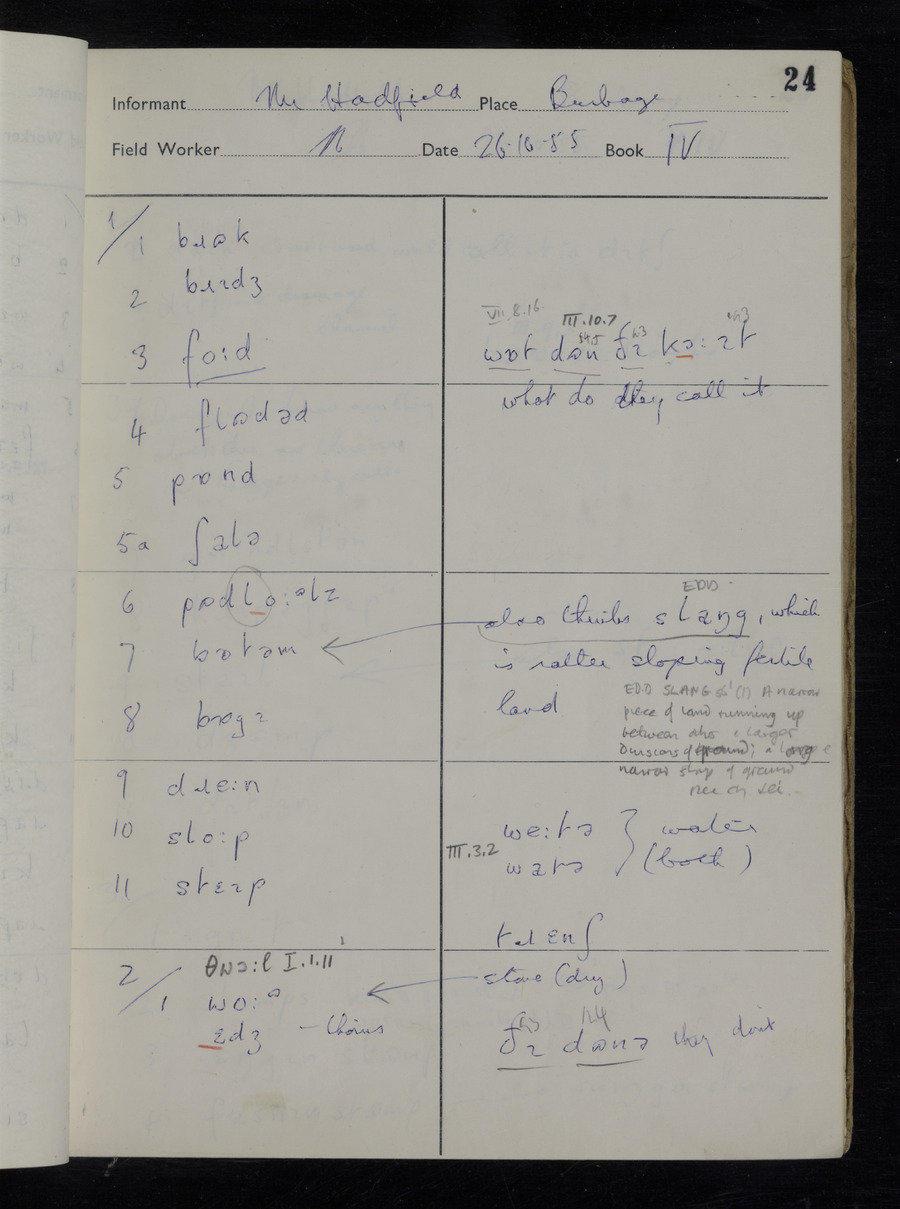 24
Informant Mr Hadfield Place Burbage
Field Worker N Date 26·10·55 Book IV
1/1 bɹʊk
2 bɹɪdʒ
3 fo:d
4 flʊdəd
5 pɒnd
5a ʃalə
6 pʊdl o:əlz
7 bɒtəm
8 bɒgɪ
9 dɹe:n
10 slo:p
11 stɛɪp
2/
θɒɔ:l I.1.11
1 wo:ə
ɛdʒ – thorns
VII.8.16.
III.10.7
wɒt dʊn ðɪ kɔ: ɪt
what do they call it
EDD.
also thinks slaŋg, which
is rather sloping fertile
land
EDD SLANG sb¹ (1) A narrow
piece of land running up
between other & larger
divisions of ground; a long
narrow strip of ground
III.3.2
we:tə } water
watə (both)
tɹɛnʃ
stone (dry)
ðɪ dʊnə they don't